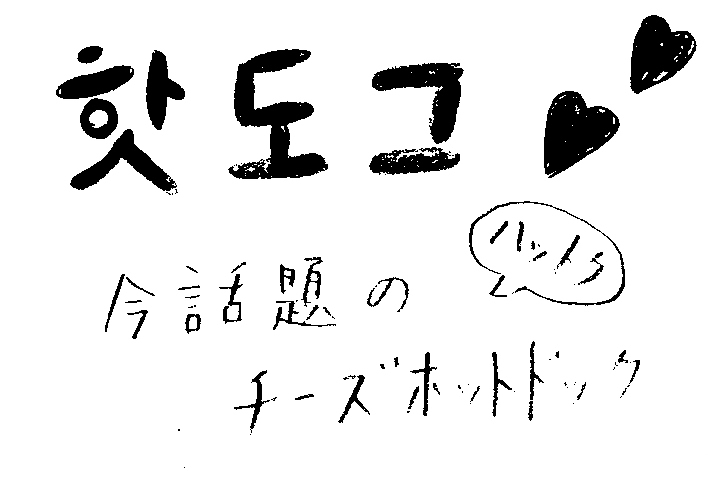 핫도그
ハットク
今話題の
チーズホットドック